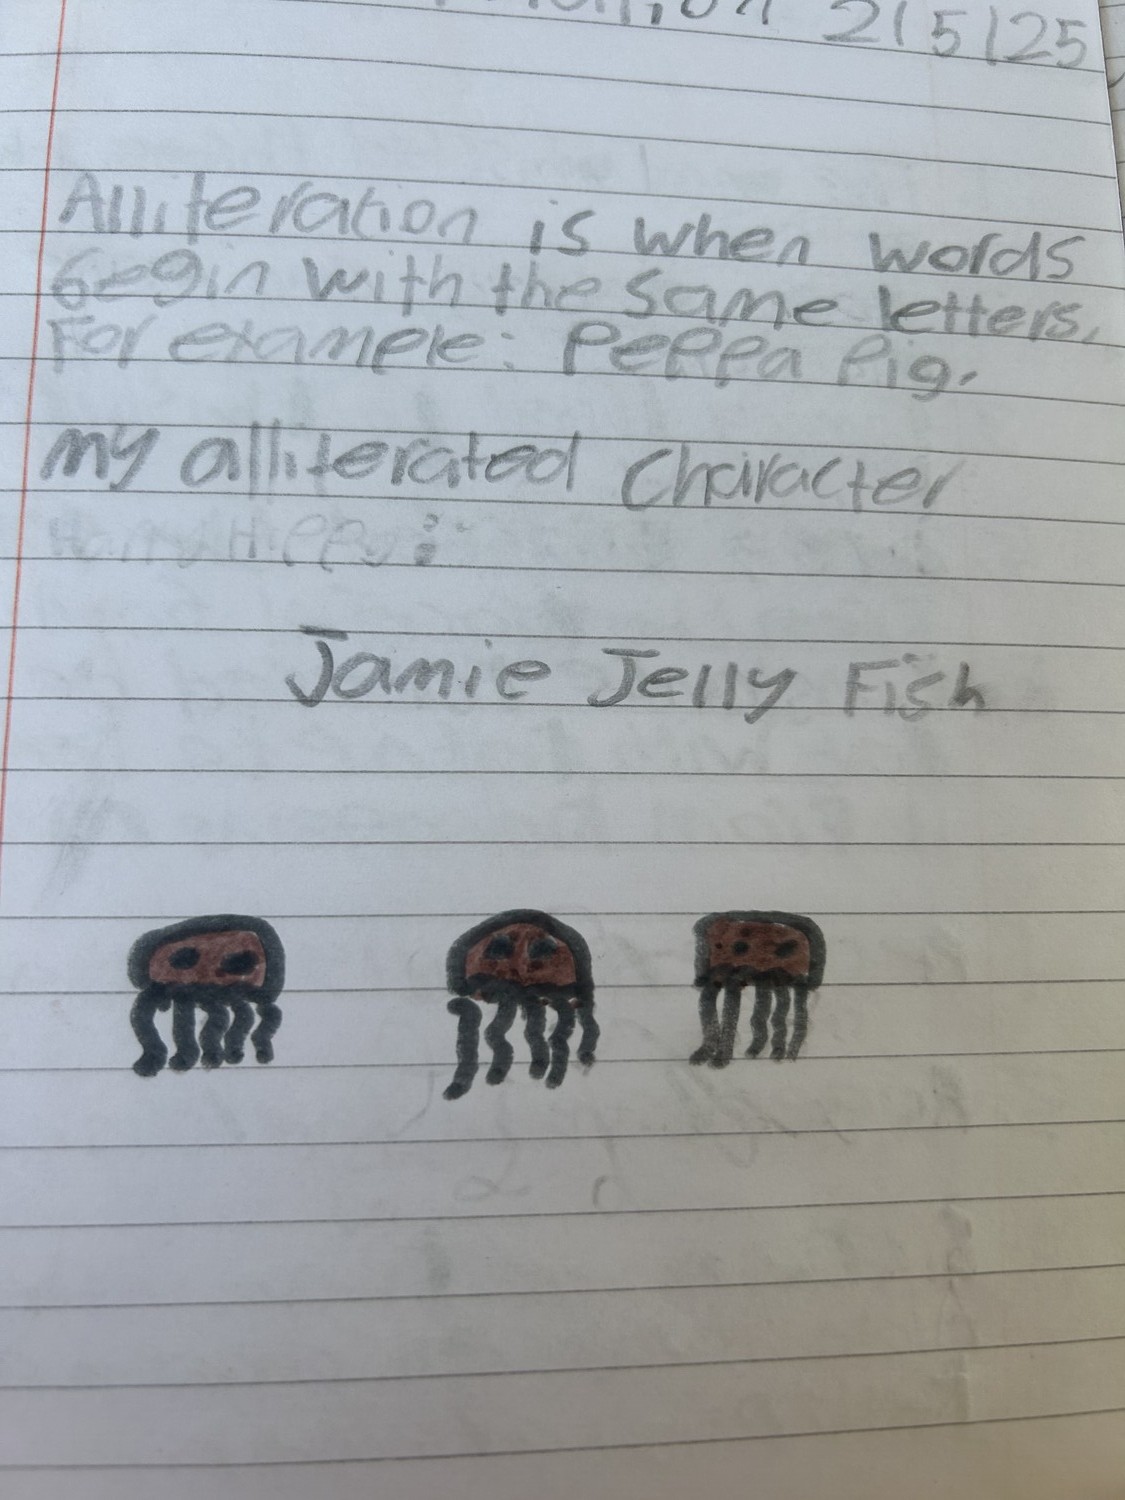 2/5/25
Alliteration is when words
begin with the same letters.
For example: Peppa Pig.
my alliterated character
:
Jamie Jelly Fish